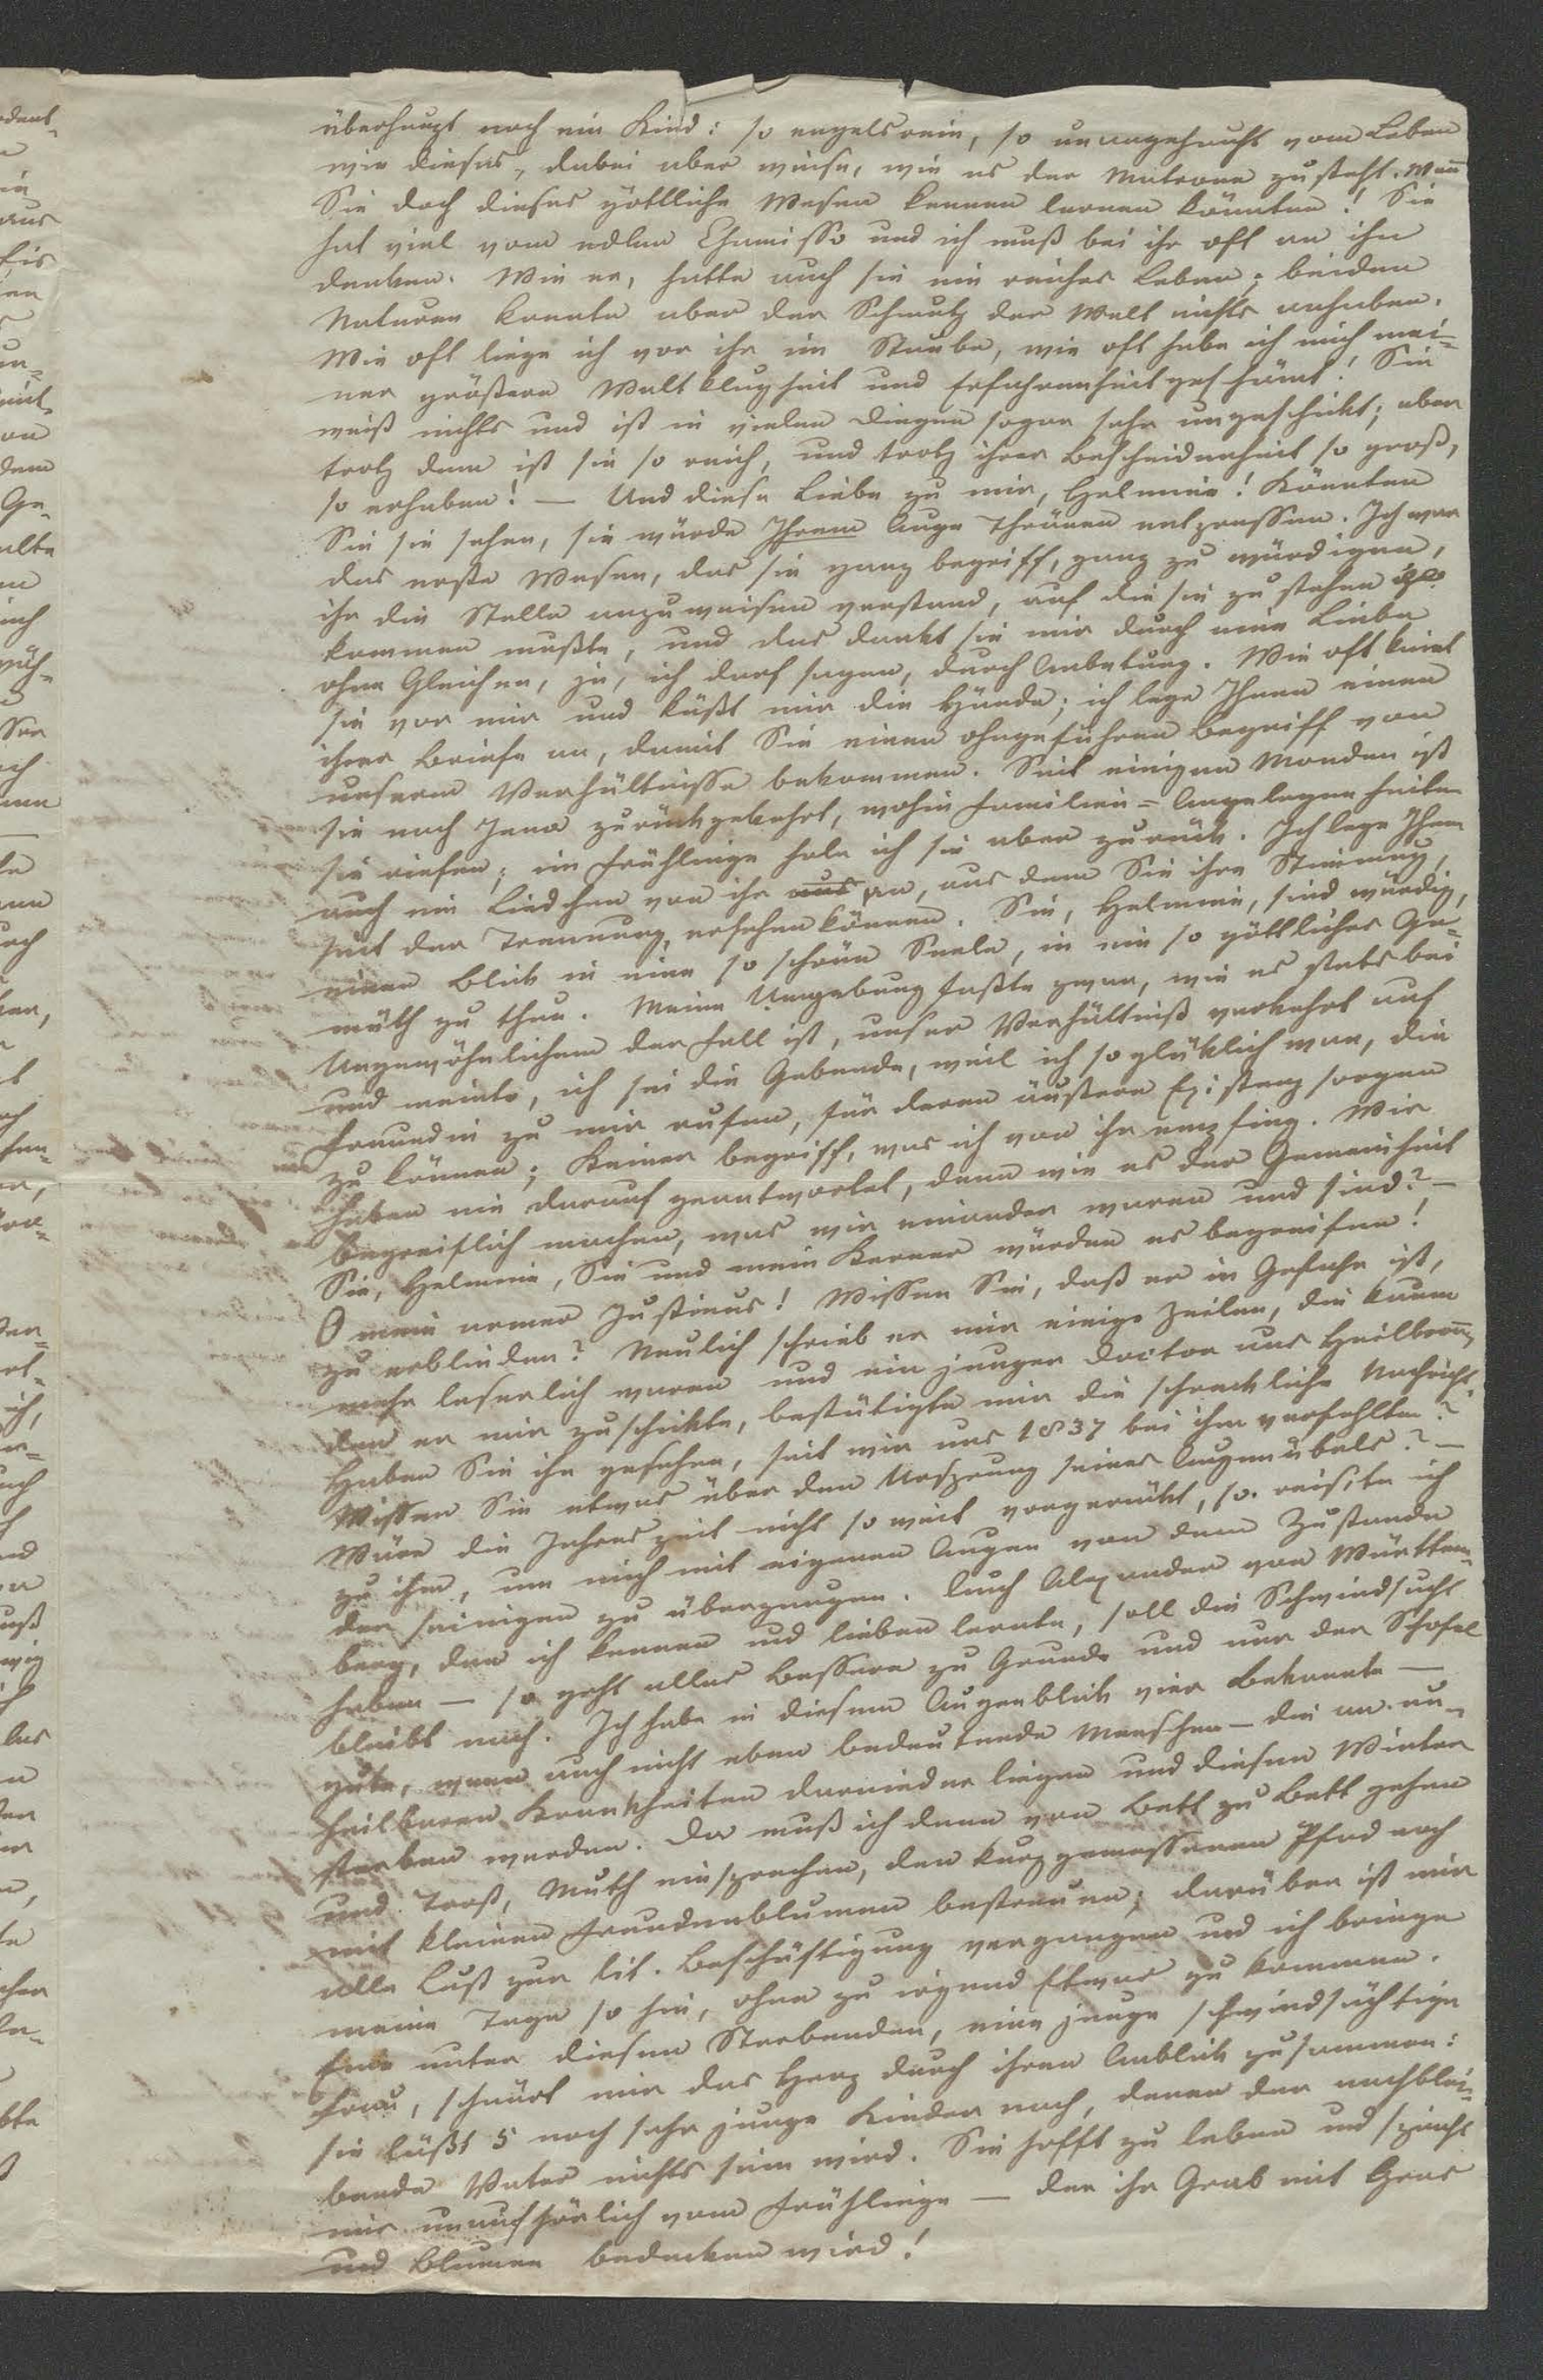 überhaupt noch ein Kind: so engelsrein, so unangehaucht vom Leben
wie dieses, dabei aber weise, wie es der Matrone zusteht. Wenn
Sie doch dieses göttliche Wesen kennen lernen könnten! Sie
hat viel vom edlen Chamisso und ich muß bei ihr oft an ihn
denken. Wie er, hatte auch sie ein reiches Leben; beiden
Naturen konnte aber der Schmutz der Welt nichts anhaben.
Wie oft liege ich vor ihr im Staube, wie oft habe ich mich mei-
ner größern Weltklugheit und Erfahrenheit geschämt! Sie
weiß nichts und ist in vielen Dingen sogar sehr ungeschickt; aber
trotz dem ist sie so reich, und trotz ihrer Bescheidenheit so groß,
so erhaben! — Und diese Liebe zu mir, Helmine! Könnten
Sie sie sehen, sie würde Ihrem Auge Thränen entpressen. Ich war
das erste Wesen, das sie ganz begriff, ganz zu würdigen,
ihr die Stelle anzuweisen verstand, auf die sie zu stehen
kommen mußte, und das dankt sie mir durch eine Liebe
ohne Gleichen, ja, ich darf sagen, durch Anbetung. Wie oft kniet
sie vor mir und küßt mir die Hände; ich lege Ihnen einen
ihrer Briefe an, damit Sie einen ohngefähren Begriff von
unserem Verhältnisse bekommen. Seit einigen Monden ist
sie nach Jena zurückgekehrt, wohin Familien-Angelegenheiten
sie riefen; im Frühlinge hole ich sie aber zurück. Ich lege Ihnen
auch ein Liedchen von ihr aus an, aus dem Sie ihre Stimmung,
seit der Trennung, ersehen können. Sie, Helmine, sind würdig,
einen Blick in eine so schöne Seele, in ein so göttliches Ge-
müth zu thun. Meine Umgebung faßte zwar, wie es stets bei
Ungewöhnlichem der Fall ist, unser Verhältniß verkehrt auf
und meinte, ich sei die Gebende, weil ich so glücklich war, die
Freundin zu mir rufen, für deren äußere Existenz sorgen
zu können; Keiner begriff, was ich von ihr empfing. Wir
haben nie darauf geantwortet, denn wie es der Gemeinheit
begreiflich machen, was wir einander waren und sind? —
Sie, Helmine, Sie und mein Kerner würden es begreifen!
O mein armer Justinus! Wissen Sie, daß er in Gefahr ist,
zu erblinden? Neulich schrieb er mir einige Zeilen, die kaum
mehr leserlich waren und ein junger Doctor aus Heilbronn,
den er mir zuschickte, bestätigte mir die schreckliche Nachricht.
Haben Sie ihn gesehen, seit wir uns 1837 bei ihm verfehlten?
Wissen Sie etwas über den Ursprung seines Augenübels? —
Wäre die Jahreszeit nicht so weit vorgerückt, so reiste ich
zu ihm, um mich mit eigenen Augen von dem Zustande
der seinigen zu überzeugen. Auch Alexander von Württem-
berg, den ich kennen und lieben lernte, soll die Schwindsucht
haben — so geht alles Bessere zu Grunde und nur der Schofel
bleibt nach. Ich habe in diesem Augenblick vier Bekannte —
gute, wenn auch nicht eben bedeutende Menschen — die an un-
heilbaren Krankheiten darnieder liegen und diesen Winter
sterben werden. Da muß ich denn von Bett zu Bett gehen
und Trost, Muth einsprechen, den kurz gemessenen Pfad noch
mit kleinen Freudenblumen bestreuen; darüber ist mir
alle Lust zur lit. Beschäftigung vergangen und ich bringe
meine Tage so hin, ohne zu irgend Etwas zu kommen.
Eine unter diesen Sterbenden, eine junge schwindsüchtige
Frau, schnürt mir das Herz durch ihren Anblick zusammen:
sie läßt 5 noch sehr junge Kinder nach, denen der nachblei-
bende Vater nichts sein wird. Sie hofft zu leben und spricht
mir unaufhörlich vom Frühlinge — der ihr Grab mit Gras
und Blumen bedecken wird!